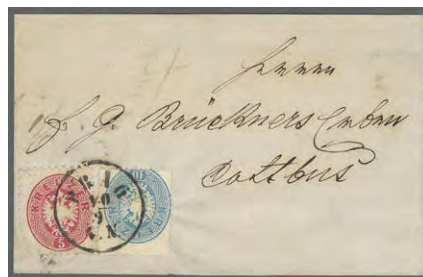 Herren
J. G. Brückners Erben
Cottbus
KREUZER
5
10